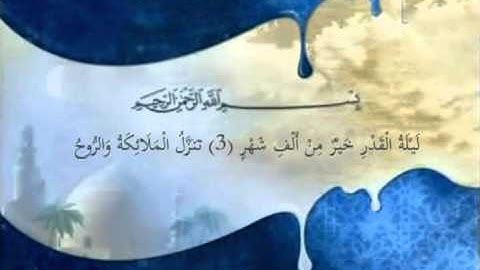 بسم الله الرحمن الرحيم
لَيْلَةُ الْقَدْرِ خَيْرٌ مِنْ أَلْفِ شَهْرٍ (3) تَنَزَّلُ الْمَلَائِكَةُ وَالرُّوحُ